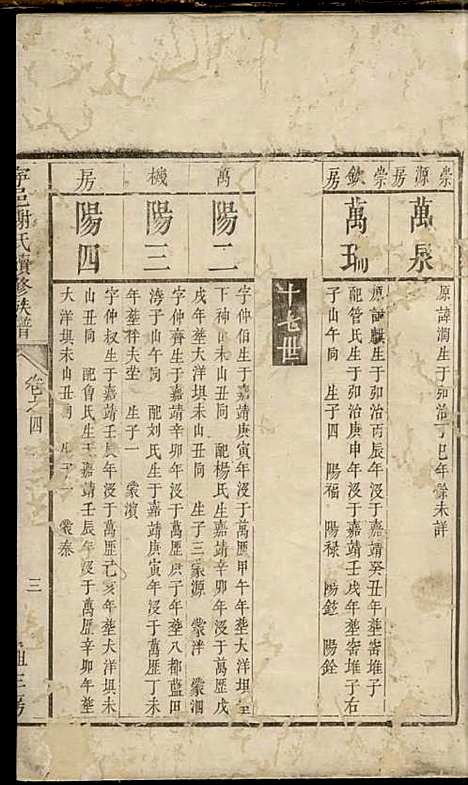 崇源房
萬泉
原諱潤生于弘治丁巳年餘未詳
崇欽房
萬瑞
原諱麒生于弘治丙辰年歿于嘉靖癸丑年塟峇堆子
配管氏生于弘治庚申年歿于嘉靖壬戌年塟峇堆子右
子山午向 生子四 陽福 陽祿 陽鎡 陽銓
十七世
萬機房
陽二
字仲佰生于嘉靖庚寅年歿于萬曆甲午年塟大洋垻
下神垻未山丑向 配楊氏生嘉靖辛卯年歿于萬曆戊
戌年塟大洋垻未山丑向 生子三 蒙源 蒙泮 蒙泗
陽三
字仲齊生于嘉靖辛卯年歿于萬曆庚子年塟八挷藍田
灣子山午向 配刘氏生于嘉靖庚寅年歿于萬曆丁未
年塟祥夫塋 生子一 蒙濱
陽四
字仲叔生于嘉靖壬辰年歿于萬曆己亥年塟大洋垻未
山丑向 配曾氏生于嘉靖壬辰年歿于萬曆辛卯年塟
大洋垻未山丑向 生子 蒙泰
寧邑謝氏續修族譜
卷之四
三